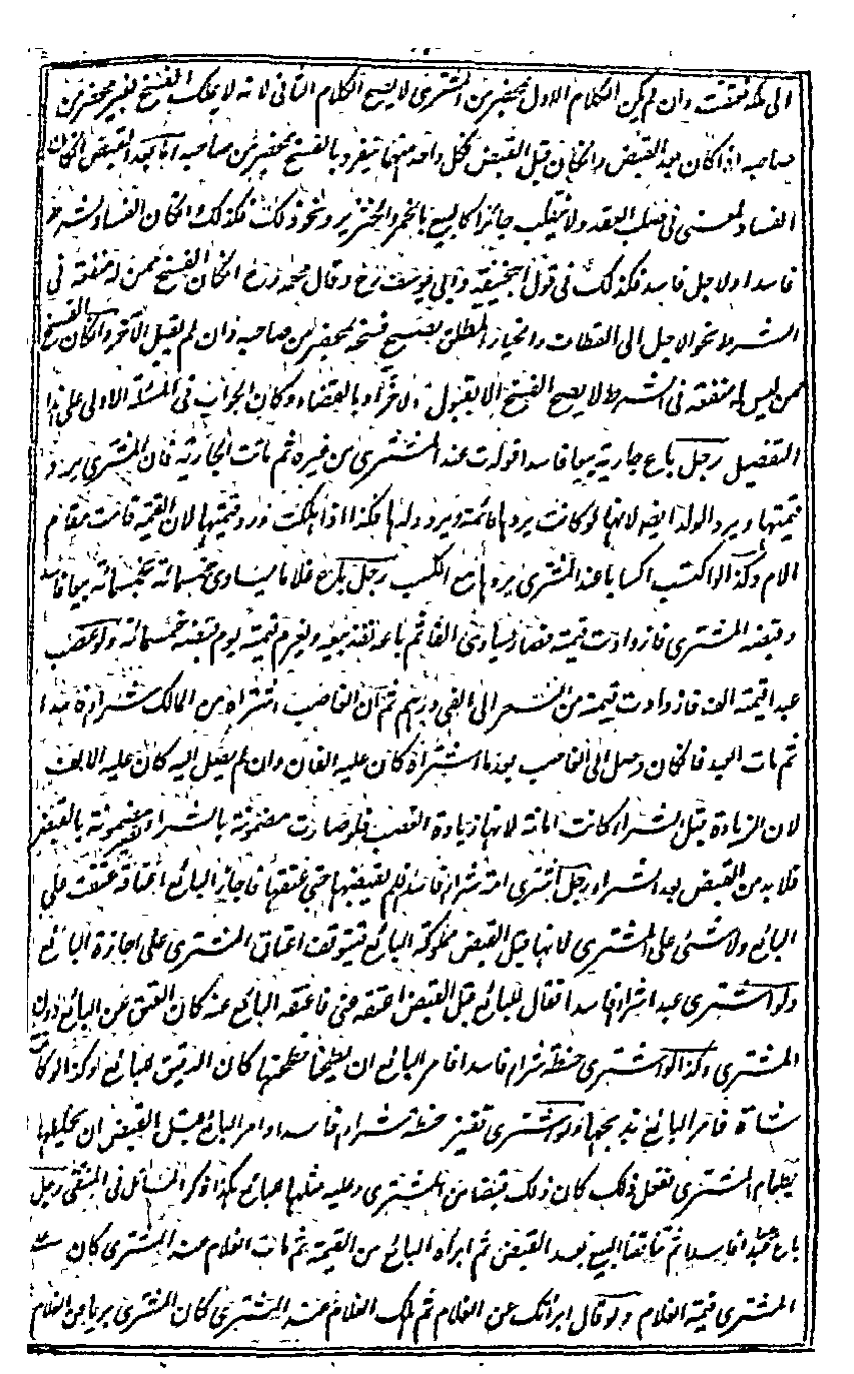 الى مكة فمتقت وان لم يكن الكلام الاول بمحضر من المشترى لا يصح الكلام الثانى لانه لا يملك الفسخ بغير محضر من
صاحبه اذا كان بعد القبض وانكان قبل القبض فكل واحد منهما ينفرد بالفسخ بمحضر من صاحبه اما بعد القبض انكان
الفساد لمعنى فى صلب العقد ولا ينقلب جائزا كالبيع بالخمر والخنزير ونحو ذلك فكذلك وانكان الفساد لشرط
فاسد او لاجل فاسد فكذلك فى قول ابيحنيفة وابى يوسف رح وقال محمد رح انكان الفسخ ممن له منفعة فى
الشرط نحو الاجل الى القطاف والخيار المطلق يصح فسخه بمحضر من صاحبه وان لم يقبل الآخر وانكان الفسخ
ممن ليس له منفعة فى الشرط لا يصح الفسخ الا بقبول الآخر او بالقضاء وكان الجواب فى المسئلة الاولى على هذا
التفصيل رجل باع جارية بيعا فاسدا فولدت عند المشترى من غيره ثم ماتت الجارية فان المشترى يرد
قيمتها ويرد الولد ايضا لانها لو كانت يردها قائمة ويرد ولدها فكذا اذا هلكت ورد قيمتها لان القيمة قامت مقام
الام وكذا لو اكتسب اكسابا عند المشترى يردها مع الكسب رجل باع غلاما يساوى خمسمائة بخمسمائة بيعا فاسدا
وقبضه المشترى فازدادت قيمته فصار يساوى الفا ثم باعه نفذ بيعه ويغرم قيمته يوم قبضه خمسمائة ولو غصب
عبدا قيمته الف فازدادت قيمته من السعر الى الفى درهم ثم ان الغاصب اشتراه من المالك شراء فاسدا
ثم مات العبد فانكان وصل الى الغاصب بعد ما اشتراه كان عليه الفان وان لم يصل اليه كان عليه الالف
لان الزيادة قبل الشراء كانت امانة لانها زيادة الغصب فلو صارت مضمونة بالشراء تصير مضمونة بالقبض
فلا بد من القبض بعد الشراء رجل اشترى امة شراء فاسدا فلم يقبضها حتى عتقها فاجاز البائع اعتاقه عتقت على
البائع ولا شئ على المشترى لانها قبل القبض مملوكة البائع فيتوقف اعتاق المشترى على اجازة البائع
ولو اشترى عبدا شراء فاسدا فقال للبائع قبل القبض اعتقه عنى فاعتقه البائع عنه كان العتق عن البائع دون
المشترى وكذا لو اشترى حنطة شراء فاسدا فامر البائع ان يطحنها فطحنها كان الدقيق للبائع وكذا لو كانت
شاة فامر البائع بذبحها ولو اشترى قفيز حنطة شراء فاسدا وامر البائع قبل القبض ان يخلطها
بطعام المشترى ففعل ذلك كان ذلك قبضا من المشترى وعليه مثلها للبائع هكذا ذكر المسائل فى المنتقى رجل
باع عبدا فاسدا ثم تناقضا البيع بعد القبض ثم ابرأه البائع من القيمة ثم مات الغلام عند المشترى كان على
المشترى قيمة الغلام ولو قال ابرأتك عن الغلام ثم هلك الغلام عند المشترى كان المشترى بريا عن الغلام